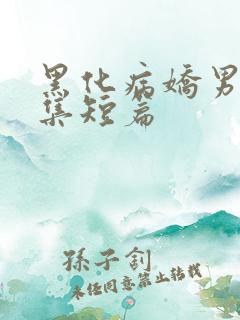 黑化病嬌男
集短篇
孫子釗
未经同意禁止转载